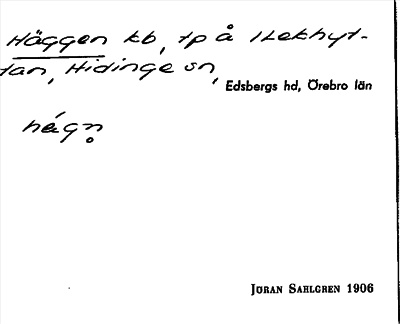 Häggen kb, tp å Lekhyt-
tan, Hidinge sn,
Edsbergs hd, Örebro län
hágn̥
JÖRAN SAHLGREN 1906